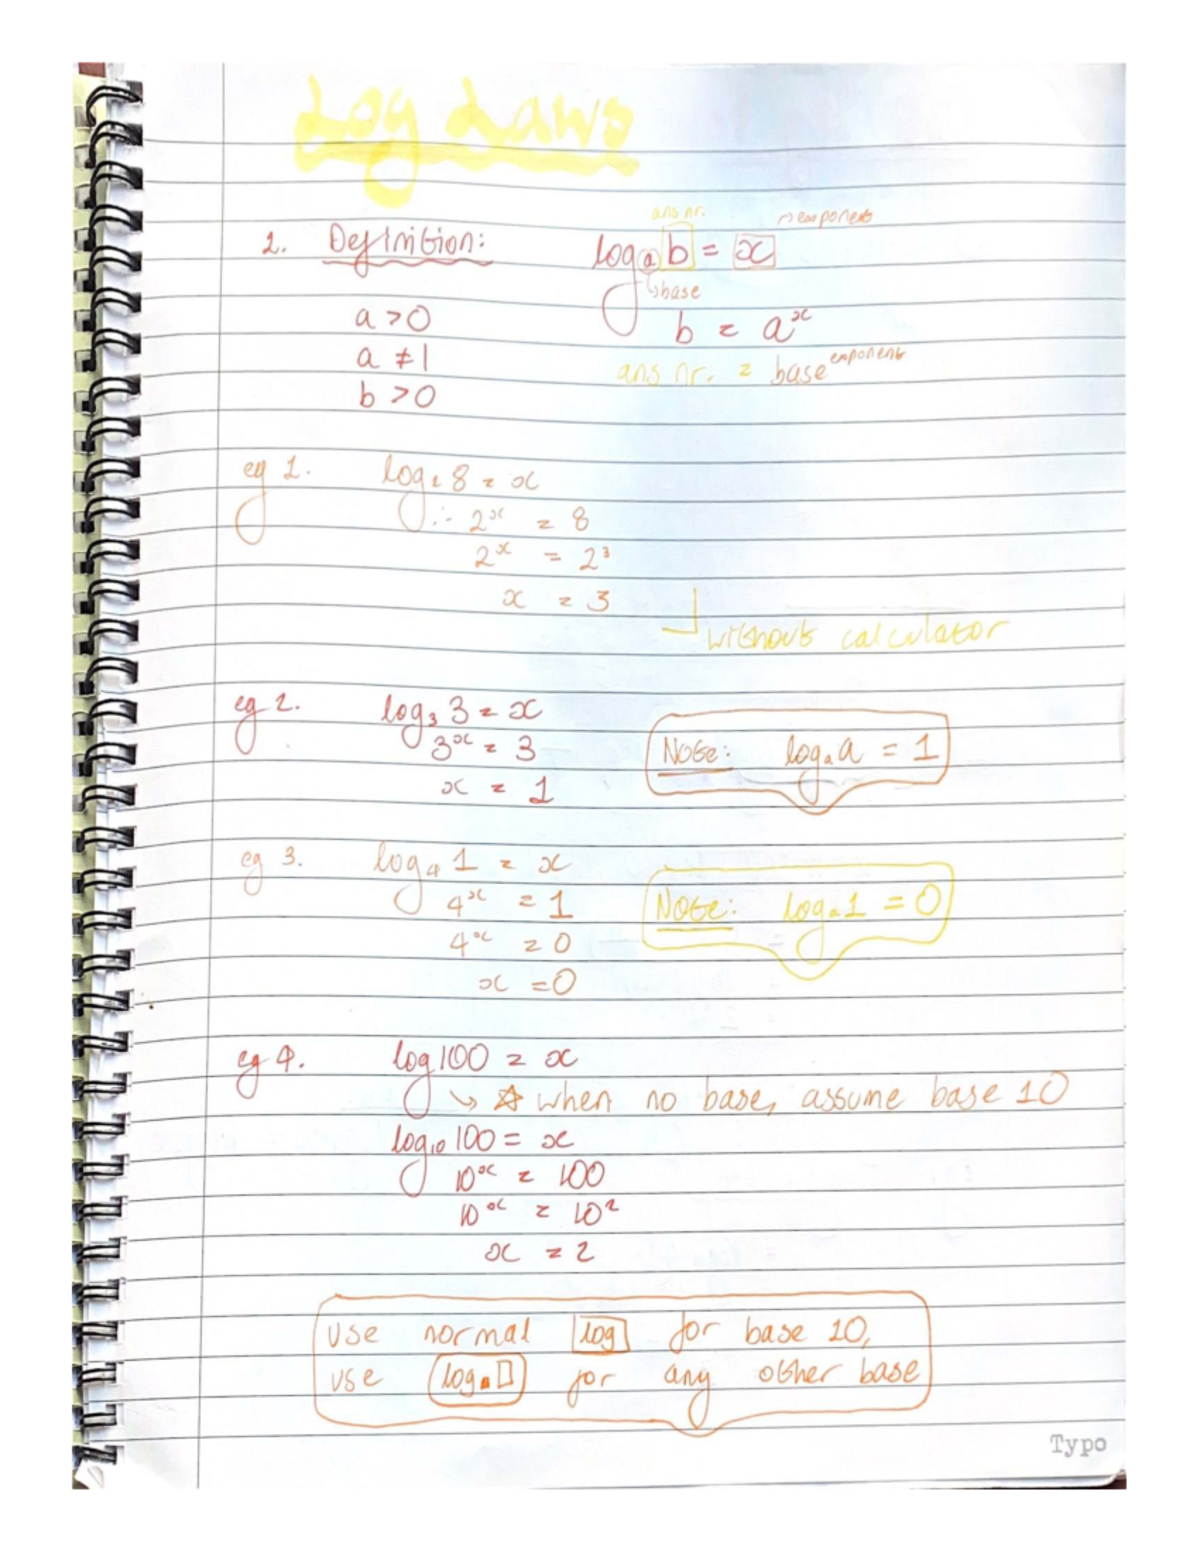 Log Laws
ans nr. → exponent
1. Definition: logₐ b = x
↳ base
a > 0 b = aˣ
a ≠ 1 ans nr. = base^exponent
b > 0
eg 1. log₂ 8 = x
∴ 2ˣ = 8
2ˣ = 2³
x = 3
without calculator
eg 2. log₃ 3 = x
3ˣ = 3 Note: logₐ a = 1
x = 1
eg 3. log₄ 1 = x
4ˣ = 1 Note: logₐ 1 = 0
4ˣ = 0
x = 0
eg 4. log 100 = x
↳ ☆ when no base, assume base 10
log₁₀ 100 = x
10ˣ = 100
10ˣ = 10²
x = 2
use normal log for base 10,
use log▪□ for any other base
Typo